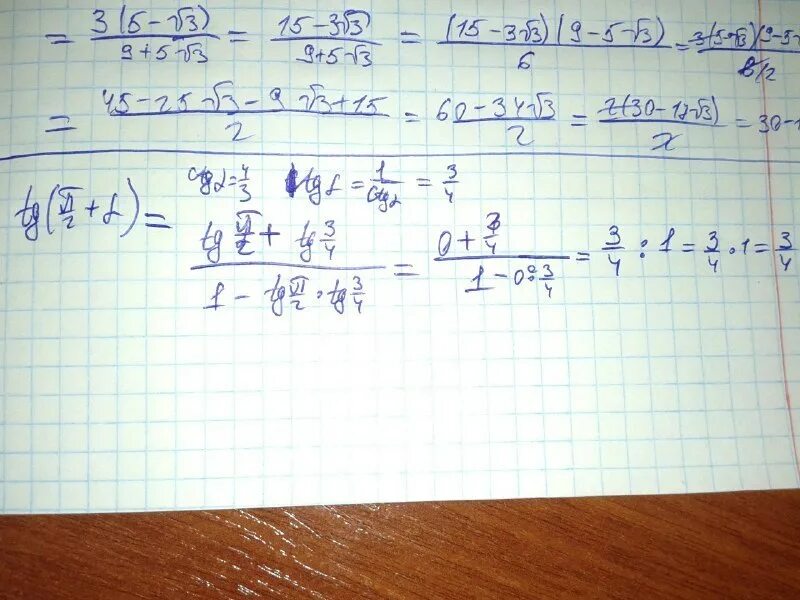 = 3(5-√3)/(9+5√3) = (15-3√3)/(9+5√3) = (15-3√3)(9-5√3)/6 = 3(5-√3)(9-5√/6/2
= (45-25√3-9√3+15)/2 = (60-34√3)/2 = 2(30-17√3)/2 = 30-1
ctg α = 4/3 tg α = 1/ctg α = 3/4
tg(π/2 + α) = (tg π/2 + tg 3/4)/(1 - tg π/2 · tg 3/4) = (0 + 3/4)/(1 - 0 · 3/4) = 3/4 : 1 = 3/4 · 1 = 3/4